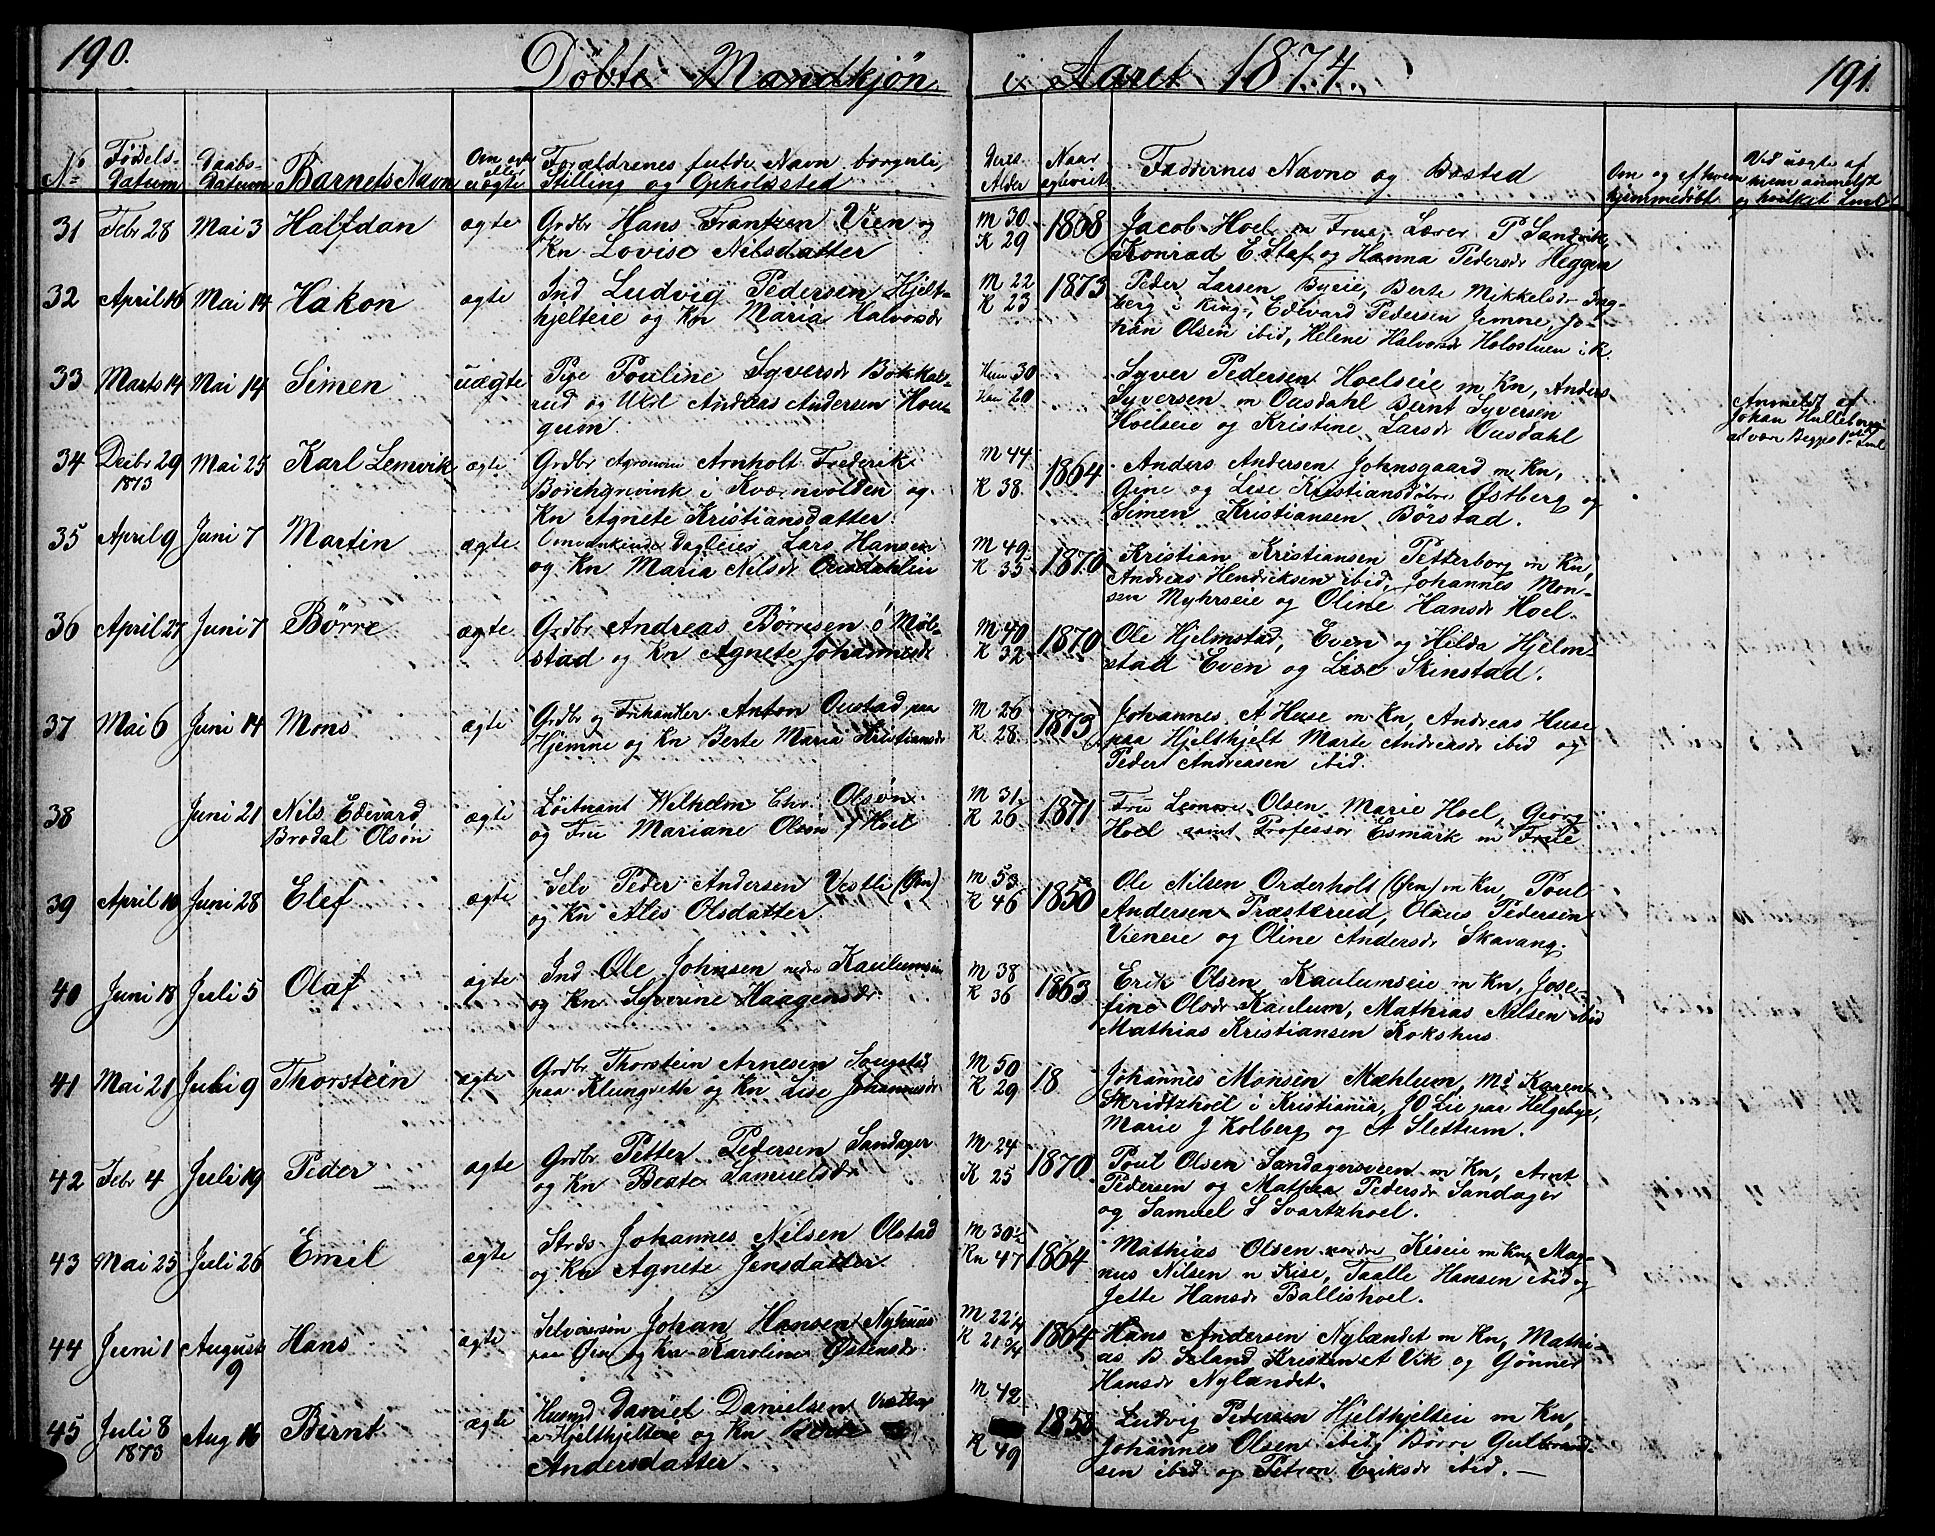 190.
Döbte Mandkjön
i Aaret 1874.
191.
No
Födsels-
Datum
Daabs-
Datum
Barnets Navn
Om ægte
eller
uægte
Forældrenes fulde Navn borgerli,
Stilling og Opholdssted
Deres
Alder
Naar
egteviet
Faddernes Navne og Bosted
Om og af hvem
hjemmedöbt
Ved uægte af
hvem anmeldt
og hvilket Leiel
31 Febr 28 Mai 3 Halfdan ægte
Grdbr Hans Frantzen Vien og
Kn Lovise Nilsdatter
M 30
K 29
1868
Jacob Hoel m Frue, Lærer P Sandvik,
Konrad E Staf og Hanna Pedersdr Heggen
32 April 16 Mai 14 Hakon ægte
Ind Ludvig Pedersen Hjelt-
hjelteie og Kn Maria Halvorsdr
M 22
K 23
1873
Peder Larsen Byeie, Berte Mikkelsdr
berg i Ring, Edevard Pedersen Jemne, Jo-
han Olsen ibid, Helene Halvorsdr Holostuen i R.
33 Marts 14 Mai 14 Simen uægte
Pige Pouline Syversdr Bakkal-
rud og Ukl Andreas Andersen Hou-
gum
Hun 30
Han 20
Syver Pedersen Hoelseie m Kn, Anders
Syversen m Ousdahl Bernt Syversen
Hoelseie og Kristine Larsdr Ousdahl
Anmeldt af
Johan Hulleborg
at være Begges 1ste Leiel
34 Decbr 29
1873
Mai 25 Karl Lemvik ægte
Grdbr Agronom Arnholt Frederik
Borchgrevink i Kværnvolden og
Kn Agnete Kristiansdatter
M 44
K 38
1864
Anders Andersen Johnsgaard m Kn,
Gine og Lise Kristiansdötre Østberg og
Simen Kristiansen Börstad.
35 April 9 Juni 7 Martin ægte
Omvankende Dagleier Lars Hansen
og Kn Maria Nilsdr Ousdahlen
M 49
K 35
1870
Kristian Kristiansen Petterborg m Kn,
Andreas Hendriksen ibid, Johannes Mon-
sen Myhrseie og Oline Hansdr Hoel.
36 April 27 Juni 7 Börre ægte
Grdbr Andreas Börresen ö Möl-
stad og Kn Agnete Johannesdr
M 40
K 32
1870
Ole Hjelmstad, Even og Hilda Hjelm-
stad Even og Lise Skinstad.
37 Mai 6 Juni 14 Mons ægte
Grdbr og Frihandler Anton Oustad paa
Hjemne og Kn Berte Maria Kristiansdr
M 26
K 28
1873
Johannes A Huse m Kn, Andreas Huse
paa Hjelthjelt Marte Andreasdr ibid og
Peder Andreasen ibid.
38 Juni 21 Nils Edevard
Brodal Olsön
ægte
Löitnant Wilhelm Chr. Olsön
og Fru Mariane Olsen f Hoel
M 31
K 26
1871
Fru Olsen, Marie Hoel, Georg
Hoel samt Professor Esmark m Frue
39 April 10 Juni 28 Elef ægte
Selv Peder Andersen Vestli (Öen)
og Kn Ales Olsdatter
M 53
K 46
1850
Ole Nilsen Orderholt (Öen) m Kn, Poul
Andersen Præstkrud, Olaus Pedersen
Vieneie og Oline Andersdr Skavang.
40 Juni 18 Juli 5 Olaf ægte
Ind Ole Johnsen nedre Kaulumseie
og Kn Syverine Haagensdr
M 38
K 36
1863
Erik Olsen Kaulumseie m Kn, Jose-
fine Olsdr Kaulum, Mathias Nilsen ibid
Mathias Kristiansen Kokshus
41 Mai 21 Juli 9 Thorstein ægte
Grdbr Thorstein Arnesen Sougstad
paa Klungveth og Kn Lise Johannesdr
M 50
K 29
18
Johannes Monsen Mæhlum, Md Karen
Skridtzhoel i Kristiania, J O Lie paa Helgebye,
Marie J Kolberg og A Slettum.
42 Febr 4 Juli 19 Peder ægte
Grdbr Petter Pedersen Sandager
og Kn Beate Samuelsdr
M 24
K 25
1870
Poul Olsen Sandagersveen m Kn, Arnt
Pedersen og Mathea Pedersdr Sandager
og Samuel S Svartzhoel.
43 Mai 25 Juli 26 Emil ægte
Strds Johannes Nilsen Olstad
og Kn Agnete Jensdatter
M 30½
Kn 47
1864
Mathias Olsen nordre Kiseie m Kn, Mag-
nus Nilsen n Kise, Taalle Hansen ibid og
Jette Hansdr Ballishoel.
44 Juni 1 August
9
Hans ægte
Selveiersön Johan Hansen Nyhuus
paa Öen og Kn Karoline Østensdr
M 22¼
K 21¾
1864
Hans Andersen Nylændet m Kn, Mathi-
as B Izland Kristen A Vik og Gönner
Hansdr Nylændet.
45 Juli 8
1873
Aug 16 Bernt ægte
Husmd Daniel Danielsen
Hjelthjelteie og Kn Berte
Andersdatter
M 42
K 49
1858
Ludvig Pedersen Hjelthjelteie m Kn,
Johannes Olsen ibid, Börre Gulbrand-
sen ibid og Petron Eriksdr ibid.